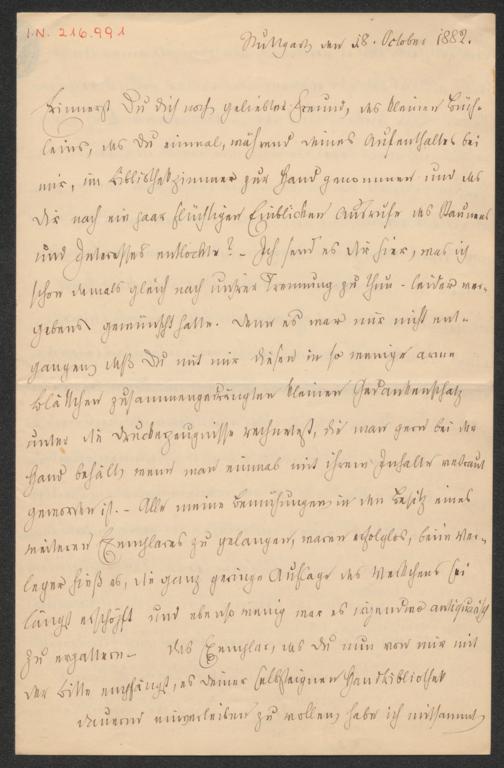 I.N. 216.991
Stuttgart den 18. October 1882.
Erinnerst Du Dich noch, geliebter Freund, des kleinen Büch-
leins, das Du einmal, während Deines Aufenthaltes bei
mir, im Bibliothekzimmer zur Hand genommen und das
Dir nach ein paar flüchtigen Einblicken Ausrufe des Staunens
und Interesses entlockte? – Ich send' es Dir hier, was ich
schon damals gleich nach unsrer Trennung zu thun – leider ver-
gebens gewünscht hatte. Denn es war mir nicht ent-
gangen, daß Du mit mir diesen in so wenige arme
Blättchen zusammengedrängten kleinen Gedankenschatz
unter die Druckerzeugnisse rechnetest, die man gern bei der
Hand behält, wenn man einmal mit ihrem Inhalte vertraut
geworden ist. – Alle meine Bemühungen, in den Besitz eines
weiteren Exemplares zu gelangen, waren erfolglos, beim Ver-
leger hieß es, die ganz geringe Auflage des Werkchens sei
längst erschöpft und ebenso wenig war es irgendwo antiquarisch
zu ergattern. – Das Exemplar, das Du nun von mir mit
der Bitte empfängst, es Deiner Handbibliothek
dauernd einverleiben zu wollen, habe ich mitsammt